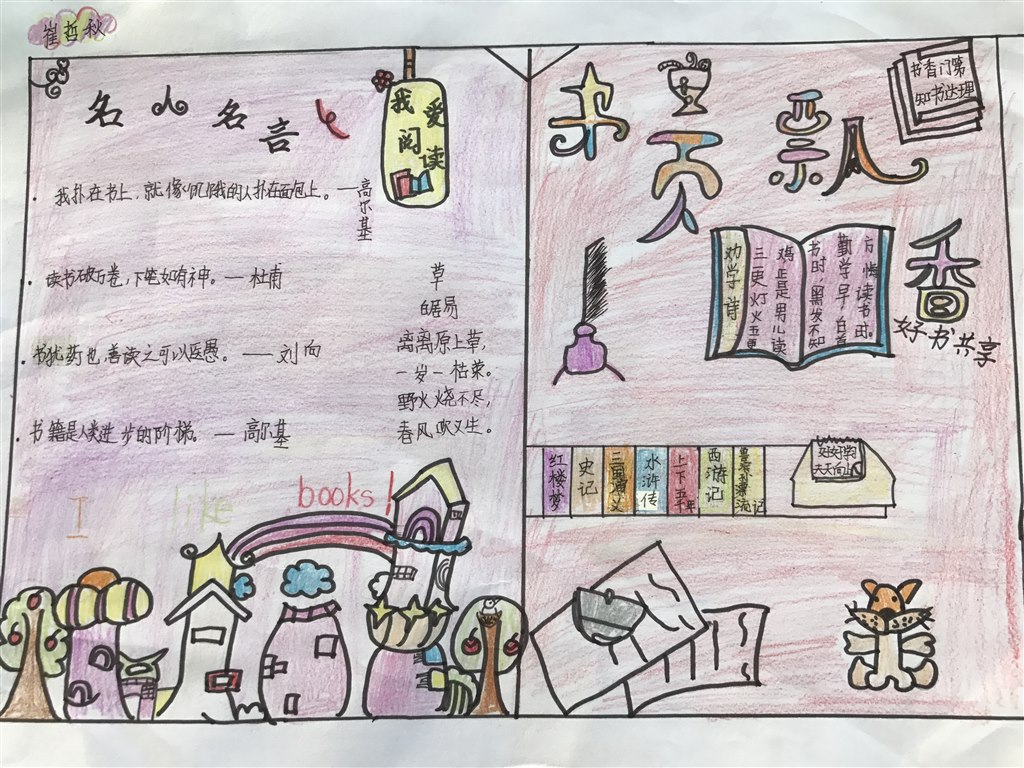 崔哲秋
名人名言
我爱
阅读
我扑在书上，就像饥饿的人扑在面包上。—高尔基
读书破万卷，下笔如有神。— 杜甫
书犹药也，善读之可以医愚。—— 刘向
书籍是人类进步的阶梯。— 高尔基
草
白居易
离离原上草，
一岁一枯荣。
野火烧不尽，
春风吹又生。
I like books!
书页飘香
书香门第
知书达理
劝学诗
三更灯火五更
鸡正是男儿读
书时，黑发不知
勤学早，白首
方悔读书时。
好书共享
红楼梦
史记
三国演义
水浒传
上下五千年
西游记
好好学习
天天向上